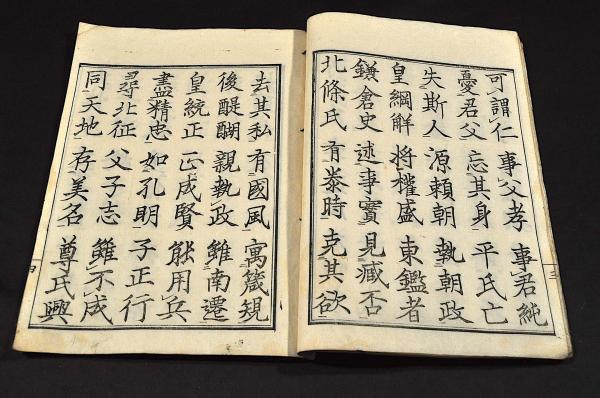 可謂仁 事父孝 事君純
憂君父 忘其身 平氏亡
失斯人 源賴朝 執朝政
皇綱解 將權盛 東鑑者
鎌倉史 述事實 見臧否
北條氏 有泰時 克其欲
去其私 有國風 寓箴規
後醍醐 親執政 雖南遷
皇統正 正成賢 能用兵
盡精忠 如孔明 子正行
尋北征 父子志 雖不成
同天地 存美名 尊氏興